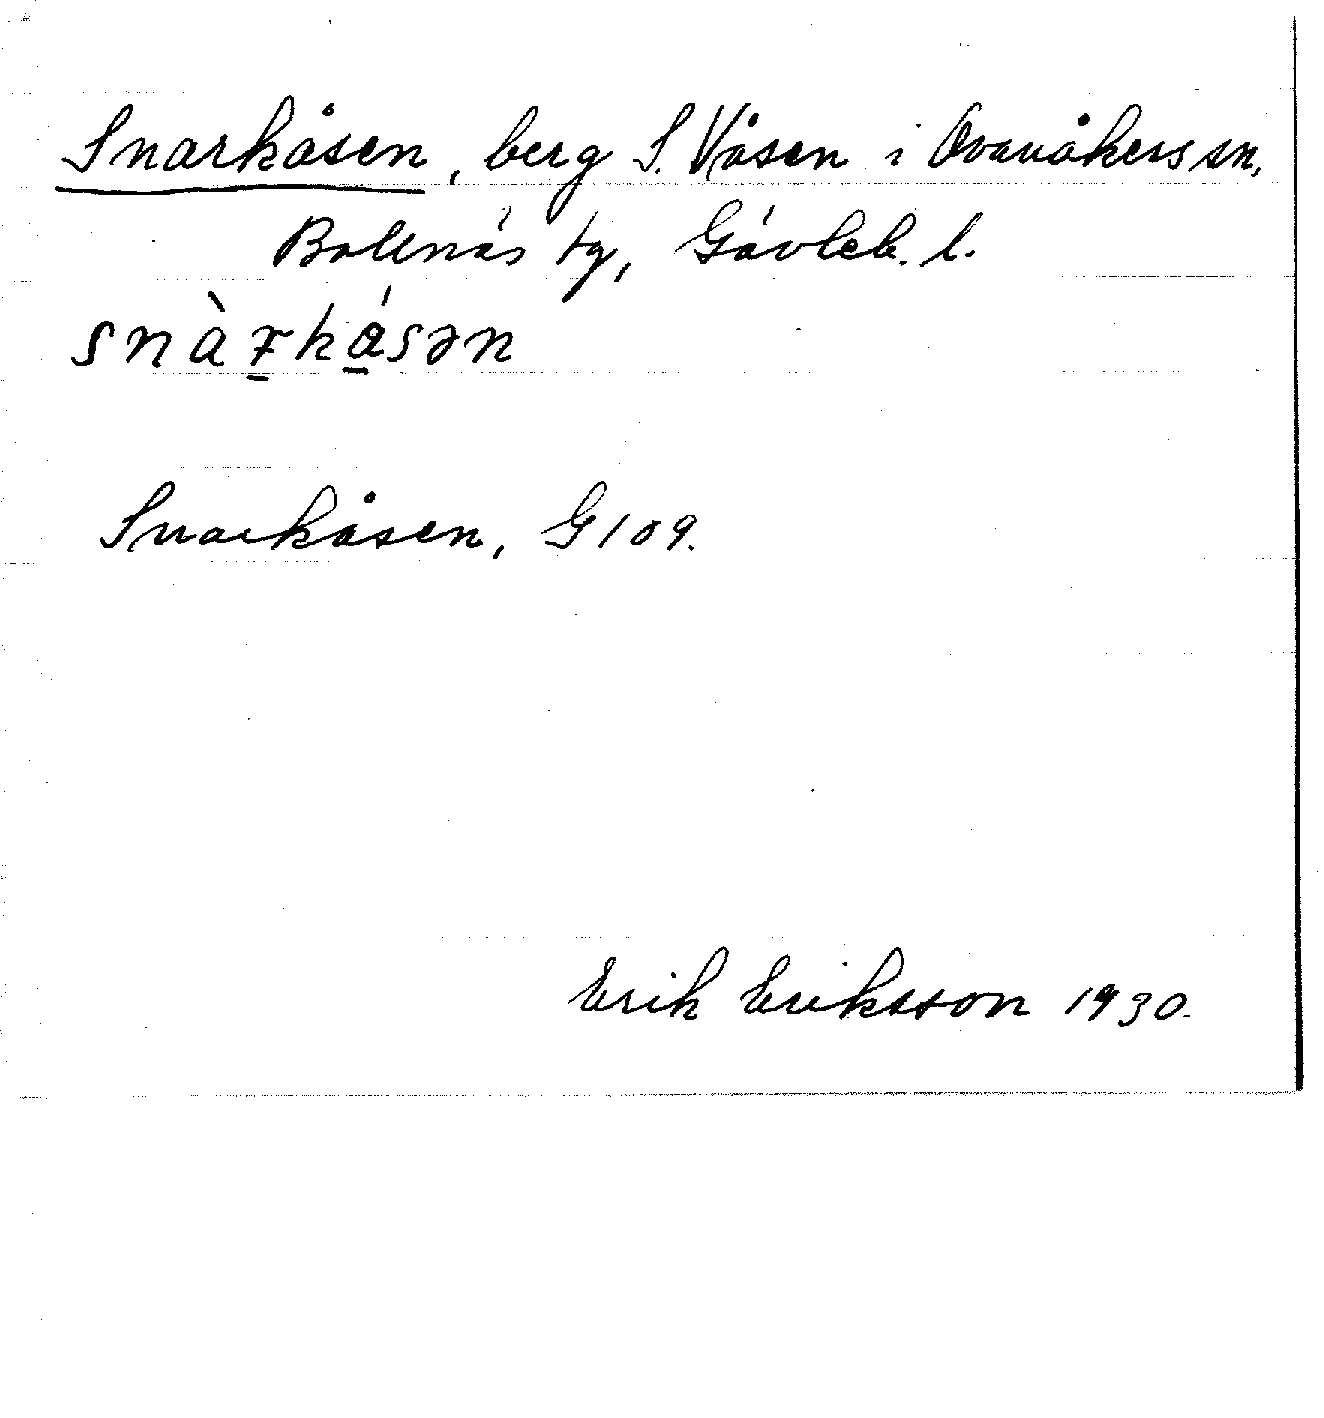 Snarkåsen, berg S. Våsen i Ovanåkers sn,
Bollnäs tg, Gävleb. l.
snàr̵kåsən
Snarkåsen, G 109.
Erik Eriksson 1930.